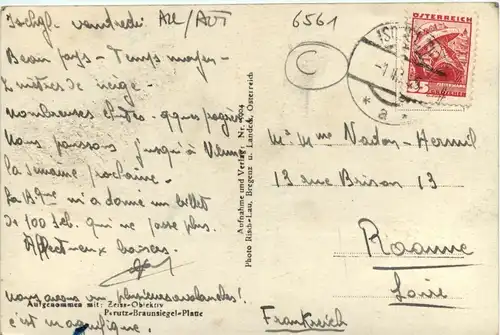 Ischgl. vendredi
ALL/AUT
6561
C
Beau pays - Temps moyen -
2 mètres de neige.
Nombreuses chutes -
Nous poussons jusqu'à Vienne
la semaine prochaine.
La Bque m'a donné un billet
de 100 Sch. qui ne passe plus.
Affectueux baisers.
Nous avons vu plusieurs avalanches!
c'est magnifique.
Aufgenommen mit: Zeiss-Objektiv
Perutz-Braunsiegel-Platte
Aufnahme und Verlag Nr.
Photo Risch-Lau, Bregenz u. Landeck, Österreich
ÖSTERREICH
35
a
Mr Mme
13 rue Brison 13
Roanne
Loire
Frankreich